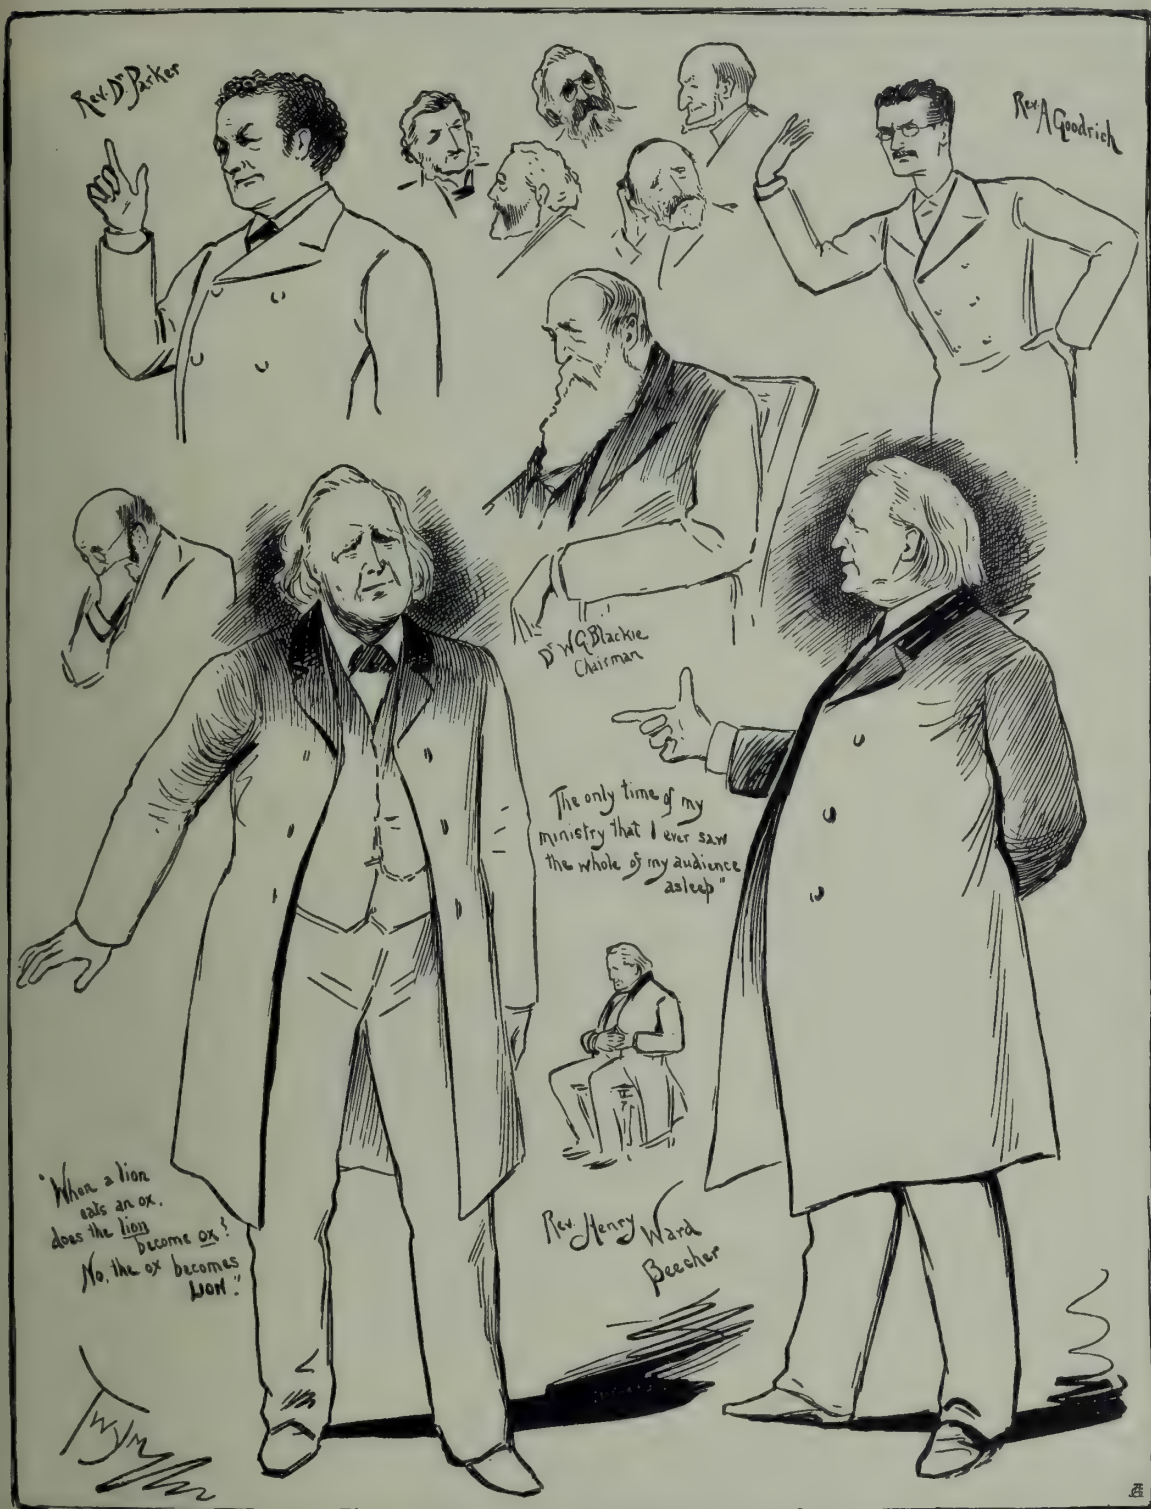 Rev. Dr. Parker
Rev. A Goodrich
Dr W G Blackie
Chairman
The only time of my
ministry that I ever saw
the whole of my audience
asleep"
"When a lion
eats an ox,
does the lion
become ox?
No, the ox becomes
LION."
Rev. Henry Ward
Beecher